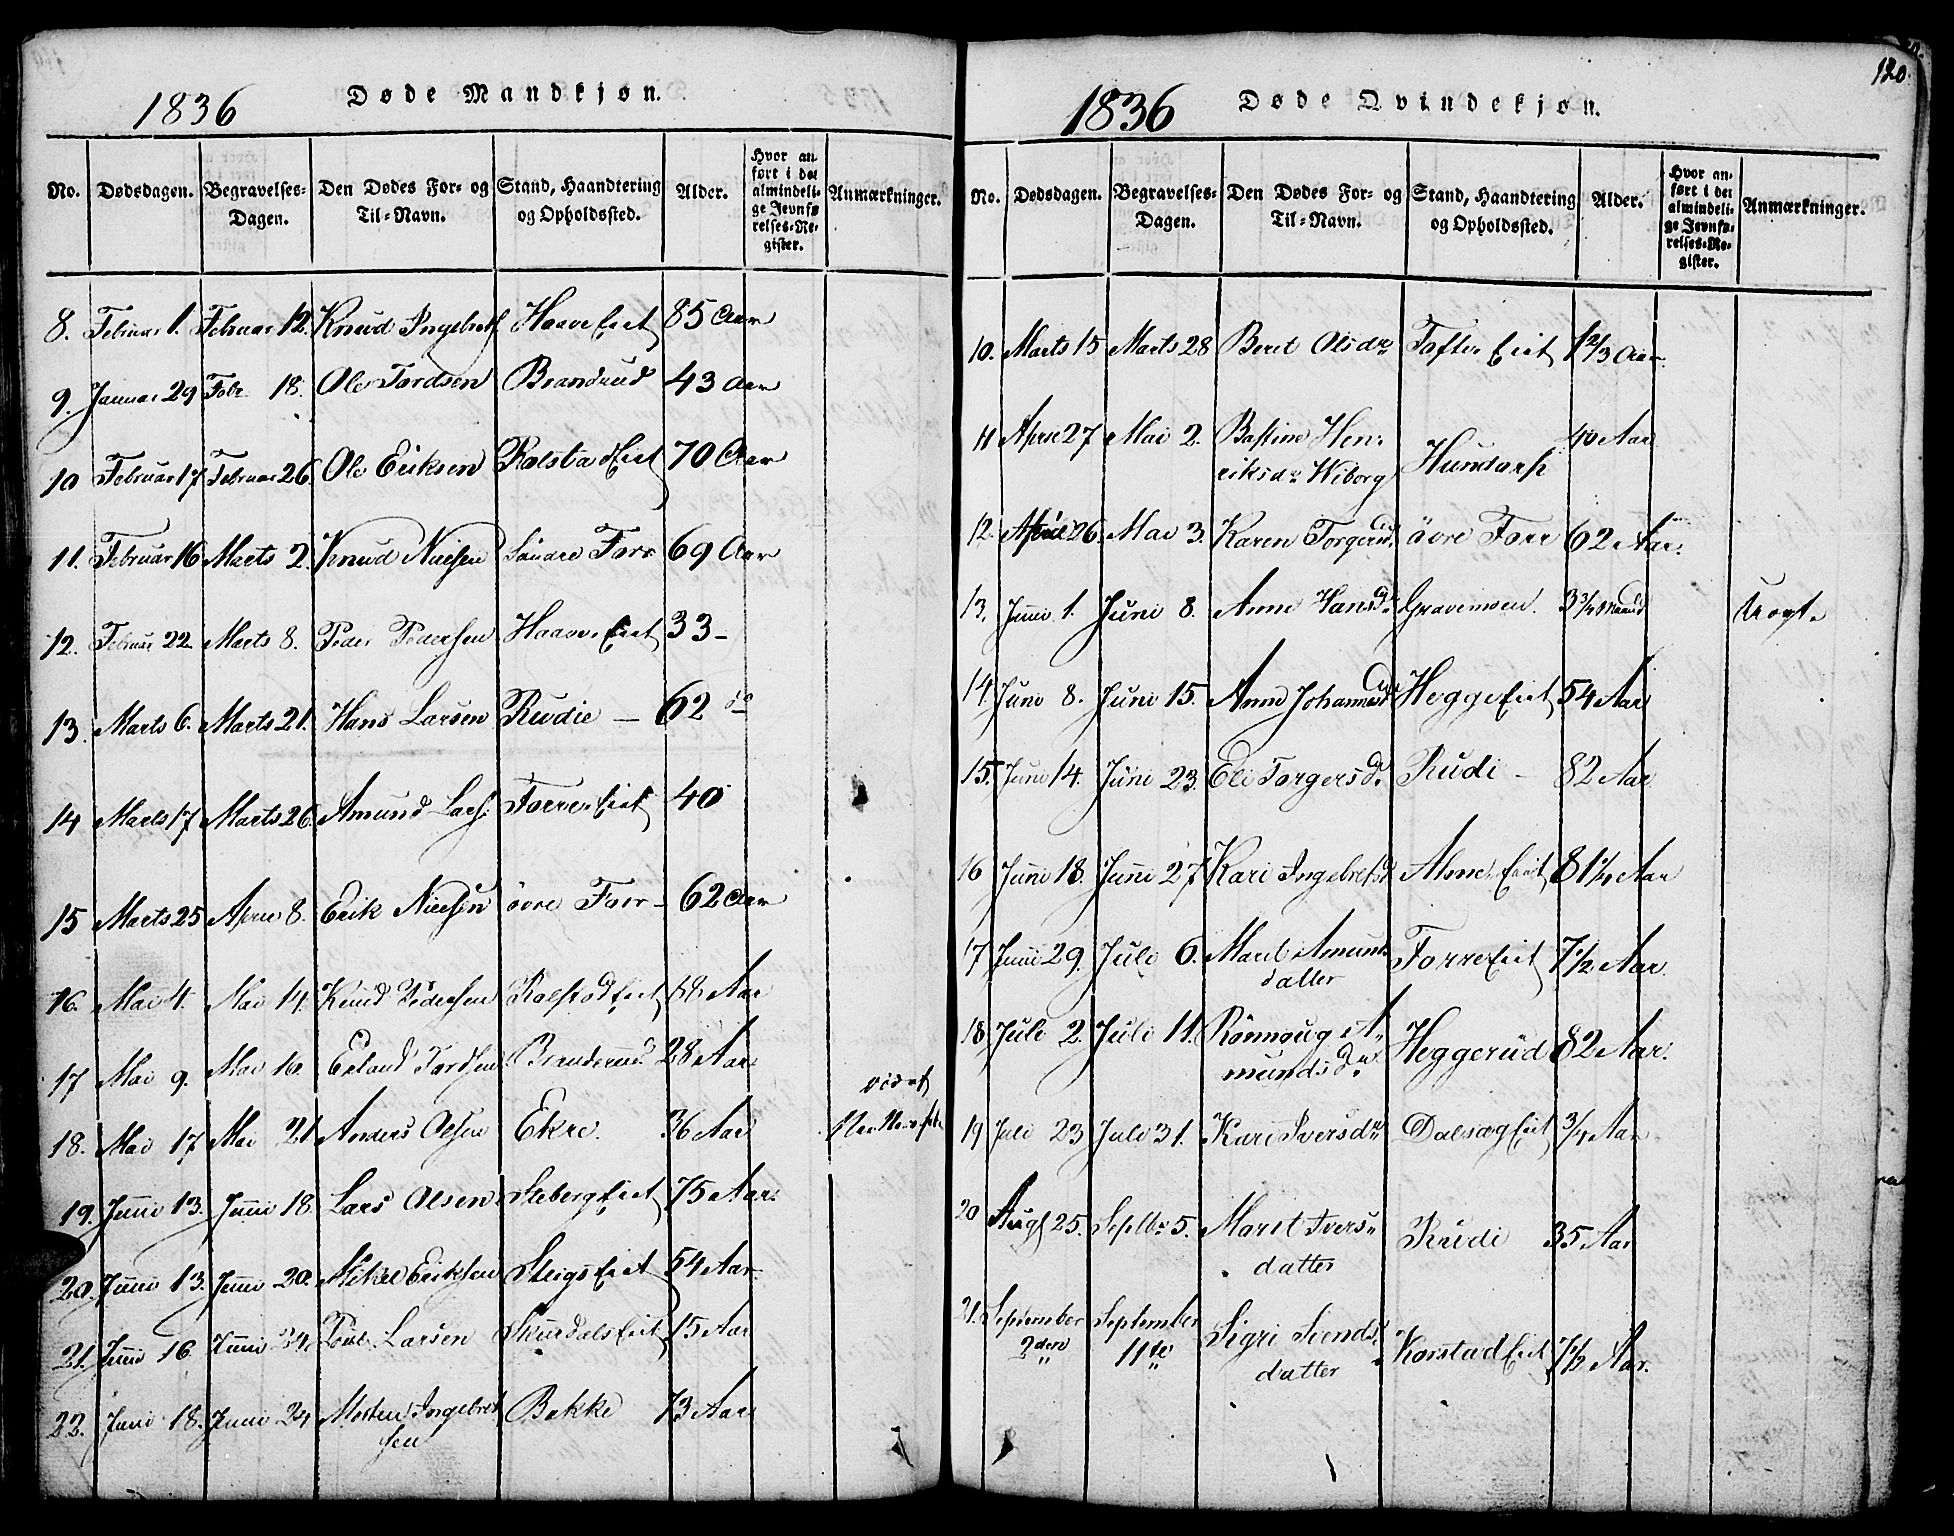 120.
1836 Døde Mandkjøn.
No. Dødsdagen. Begravelses-Dagen. Den Dødes For- og Til-Navn. Stand, Haandtering og Opholdssted. Alder. Hvor anført i det almindelige Jevnførelses-Register. Anmærkninger.
8. Februar 1. Februar 12. Knud Ingebrets Haave Eiet 85 Aar
9. Januar 29 Febr 18. Ole Tordsen Brandrud 43 Aar
10 Februar 17 Februar 26. Ole Eriksen Kolstad Eiet 70 Aar
11. Februar 16 Marts 2. Knud Nielsen Söndre Forr 69 Aar
12. Februar 22. Marts 8. Peder Pedersen Haave Eiet 33 –
13. Marts 6. Marts 21. Hans Larsen Rudie – 62 do
14 Marts 17 Marts 26. Amund Lars. Forre Eiet 40
15 Marts 25 April 8. Erik Nielsen övre Forr – 62 Aar
16. Mai 4. Mai 14. Knud Pedersen Kolstad Eiet 88 Aar
17 Mai 9. Mai 16. Erland Tordsen Branderud 28 Aar
18. Mai 17 Mai 21 Anders Olsen Ekre. 36 Aar
19. Juni 13. Juni 18. Lars Olsen Steberg Eiet 75 Aar.
20. Juni 13. Juni 20. Mikel Eriksen Steigs Eiet 54 Aar
21. Juni 16 Juni 24, Poul Larsen Skurdals Eiet 15 Aar
22. Juni 18. Juni 24 Morten Ingebret
sen Bakke 73 Aar
1836 Døde Qvindekjøn.
No. Dødsdagen. Begravelses-Dagen. Den Dødes For- og Til-Navn. Stand, Haandtering og Opholdssted. Alder. Hvor anført i det almindelige Jevnførelses-Register. Anmærkninger.
10. Marts 15 Marts 28 Beret Olsdr Tofte Eiet 1 2/3 Aar.
11 April 27 Mai 2. Bastine Hen-
riksdr Wiborg Hundorp 40 Aar
12. April 26. Mai 3. Karen Torgersd. övre Forr 62 Aar.
13. Juni 1. Juni 8. Anne Hansdr Gravemoen. 3 3/4 Maaned
14. Juni 8. Juni 15. Anne Johannesd Hegge Eiet 54 Aar
15. Juni 14. Juni 23. Eli Torgersd. Rudi – 82 Aar
16 Juni 18. Juni 27 Kari Ingebretsd Alme Eiet 81 1/4 Aar
17 Juni 29. Juli 6. Marit Amunds
datter Forre Eiet 7 1/2 Aar.
18. Juli 2. Juli 11. Rönnoug A-
mundsdr. Heggerud 82 Aar.
19 Juli 23 Juli 31. Kari Iversdr Dalsæg Eiet 3/4 Aar
20 Augs 25. Septbr 5. Marit Ivers-
datter Rudi 35 Aar
21. September
2den September
11te Sigri Svends
datter Korstad Eiet 7 1/2 Aar.